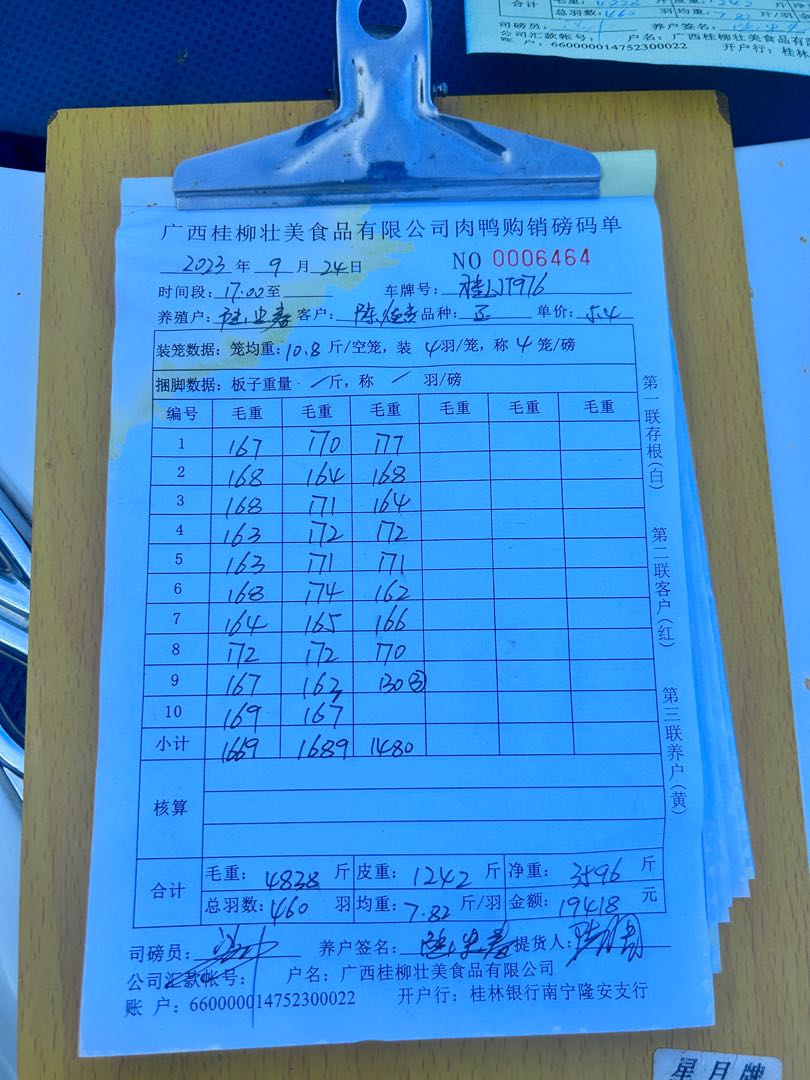 合计 毛重: 4838 斤 皮重: 1242 斤
总羽数: 460 羽 均重: 7.82 斤/羽
司磅员: 养户签名:
公司汇款帐号: 户名: 广西桂柳壮美食品有
账 户: 660000014752300022 开户行: 桂林
广西桂柳壮美食品有限公司肉鸭购销磅码单
2023 年 9 月 24 日 NO 0006464
时间段: 17:00 至 车牌号:
养殖户: 客户: 品种: 正 单价: 5.4
装笼数据: 笼均重: 10.8 斤/空笼, 装 4 羽/笼, 称 4 笼/磅
捆脚数据: 板子重量 / 斤, 称 / 羽/磅
编号 毛重 毛重 毛重 毛重 毛重 毛重
1 167 170 177
2 168 164 168
3 168 171 164
4 163 172 172
5 163 171 171
6 168 174 162
7 164 165 166
8 172 172 170
9 167 163 130 ③
10 169 167
小计 1669 1689 1480
核算
合计 毛重: 4838 斤 皮重: 1242 斤 净重: 3596 斤
总羽数: 460 羽 均重: 7.82 斤/羽 金额: 19418 元
司磅员: 养户签名: 提货人:
公司汇款帐号: 户名: 广西桂柳壮美食品有限公司
账 户: 660000014752300022 开户行: 桂林银行南宁隆安支行
第一联存根(白)
第二联客户(红)
第三联养户(黄)
星月牌